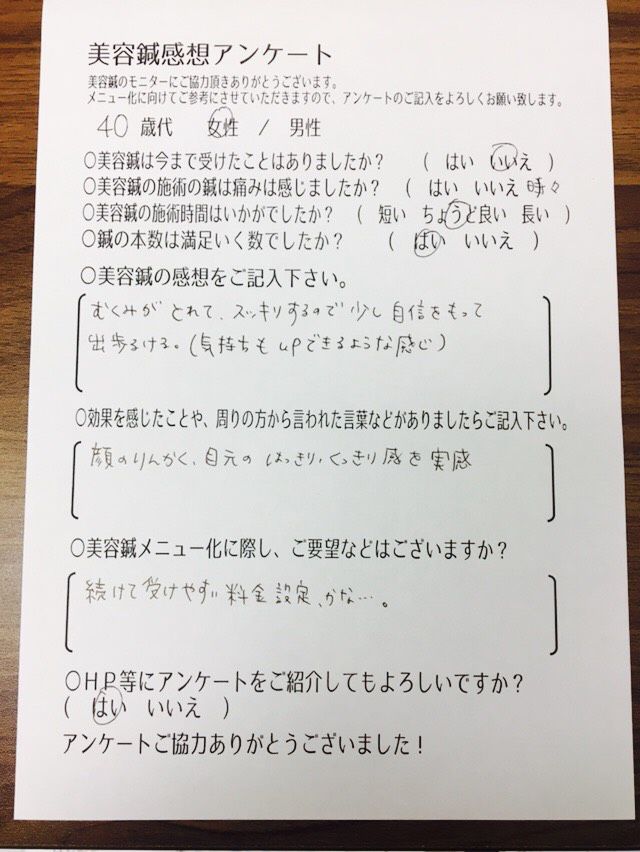 美容鍼感想アンケート
美容鍼のモニターにご協力頂きありがとうございます。
メニュー化に向けてご参考にさせていただきますので、アンケートのご記入をよろしくお願い致します。
40 歳代 女性 / 男性
○美容鍼は今まで受けたことはありましたか? ( はい いいえ )
○美容鍼の施術の鍼は痛みは感じましたか? ( はい いいえ 時々
○美容鍼の施術時間はいかがでしたか? ( 短い ちょうど良い 長い )
○鍼の本数は満足いく数でしたか? ( はい いいえ )
○美容鍼の感想をご記入下さい。
むくみが とれて、スッキリするので 少し 自信をもって
出歩るける。(気持ちも upできるような感じ)
○効果を感じたことや、周りの方から言われた言葉などがありましたらご記入下さい。
顔のりんかく、目元の はっきり、くっきり 感を 実感
○美容鍼メニュー化に際し、ご要望などはございますか?
続けて受けやすい 料金設定、かな…。
○HP等にアンケートをご紹介してもよろしいですか?
( はい いいえ )
アンケートご協力ありがとうございました!